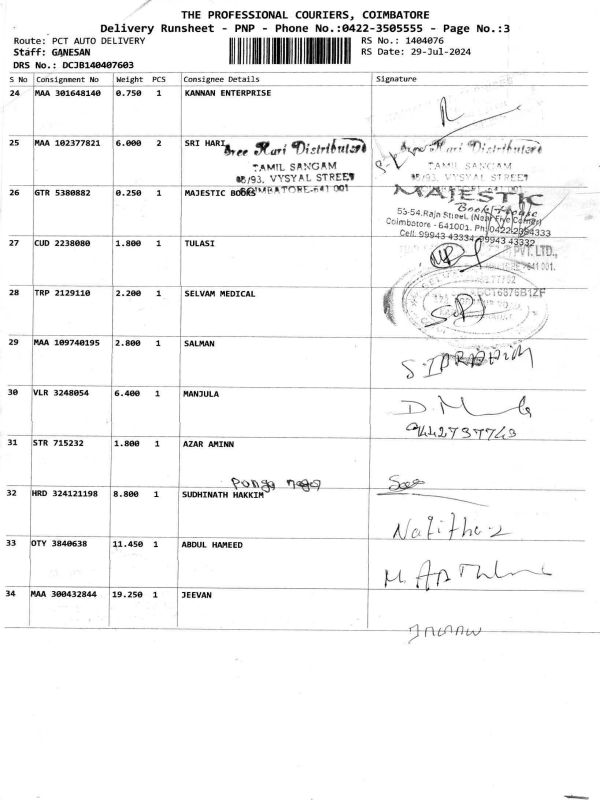 THE PROFESSIONAL COURIERS, COIMBATORE
Delivery Runsheet - PNP - Phone No.:0422-3505555 - Page No.:3
Route: PCT AUTO DELIVERY RS No.: 1404076
Staff: GANESAN RS Date: 29-Jul-2024
DRS No.: DCJB140407603
S No Consignment No Weight PCS Consignee Details Signature
24 MAA 301648140 0.750 1 KANNAN ENTERPRISE
25 MAA 102377821 6.000 2 SRI HARI
Sree Hari Distributors Sree Hari Distributors
TAMIL SANGAM TAMIL SANGAM
VYSYAL STREET VYSYAL STREET
COIMBATORE-641 001
26 GTR 5380882 0.250 1 MAJESTIC BOOKS
MAJESTIC
Book House
53-54, Raja Street, (Near Five Corner)
Coimbatore - 641001. Ph: 0422 2394333
Cell: 99943 43334, 99943 43332
27 CUD 2238080 1.800 1 TULASI
PVT. LTD.,
641 001.
28 TRP 2129110 2.200 1 SELVAM MEDICAL
29 MAA 109740195 2.800 1 SALMAN
30 VLR 3248054 6.400 1 MANJULA
9442737743
31 STR 715232 1.800 1 AZAR AMINN
32 HRD 324121198 8.800 1 SUDHINATH HAKKIM
33 OTY 3840638 11.450 1 ABDUL HAMEED
34 MAA 300432844 19.250 1 JEEVAN